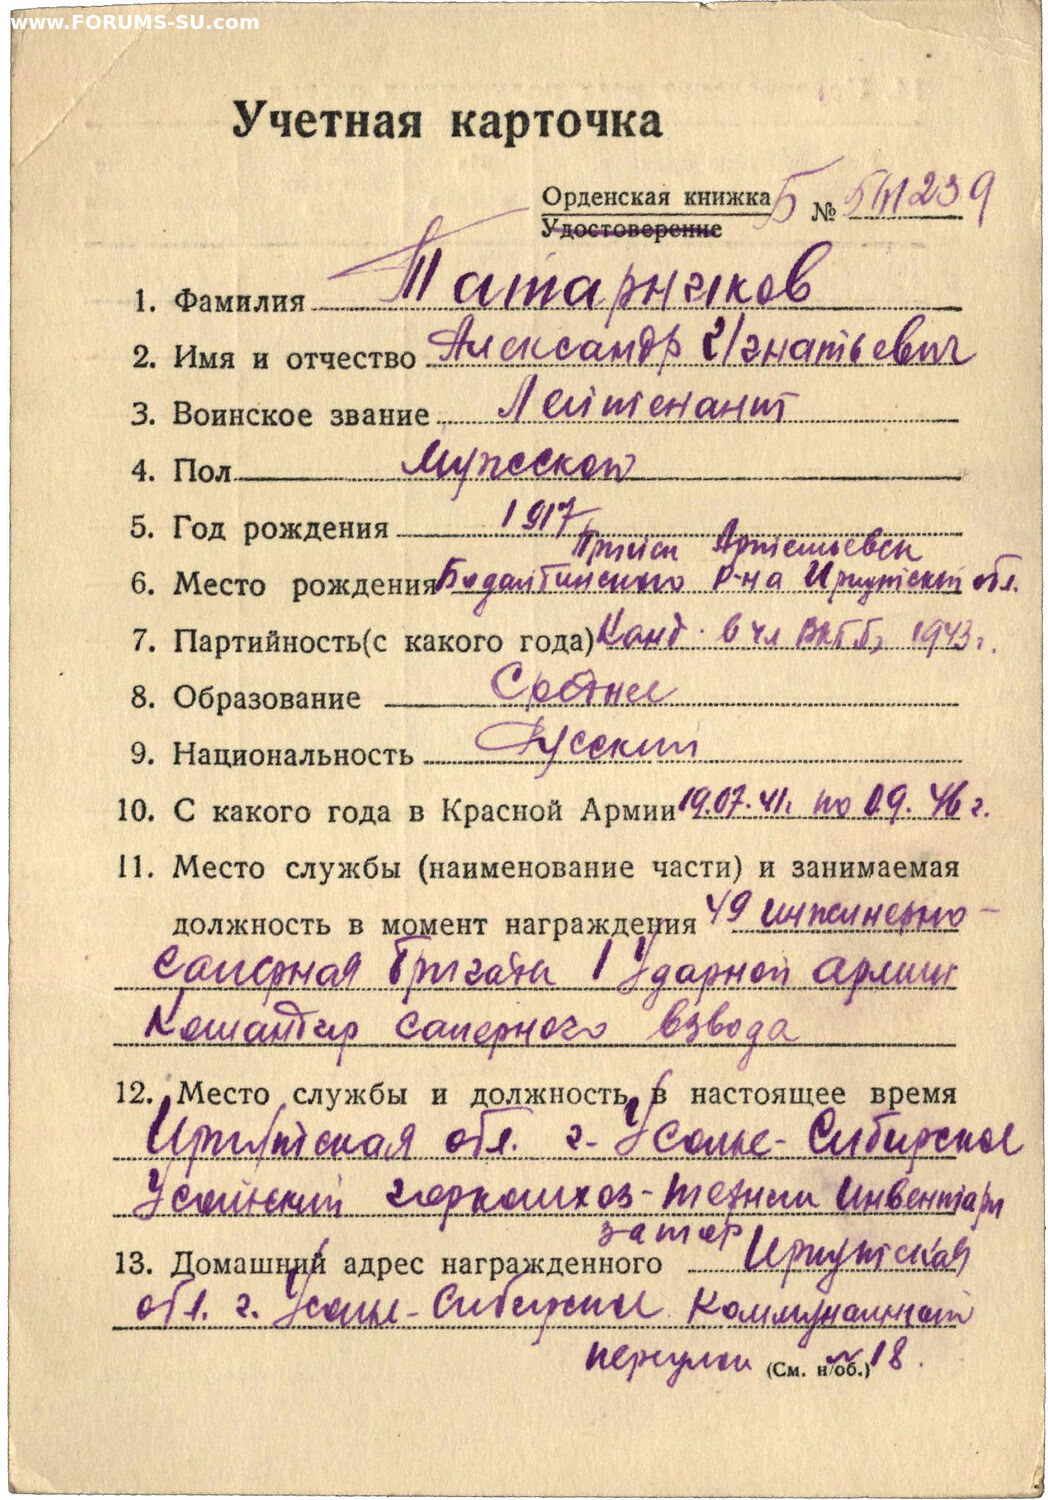 www.FORUMS-SU.com
Учетная карточка
Орденская книжка Б №
Удостоверение
1. Фамилия Татарников
2. Имя и отчество Александр Игнатьевич
3. Воинское звание Лейтенант
4. Пол Мужской
5. Год рождения 1917
Прииск Артемьевск
6. Место рождения Бодайбинского р-на Иркутской обл.
7. Партийность (с какого года) Канд. в чл ВКПб, 1943 г.
8. Образование Среднее
9. Национальность Русский
10. С какого года в Красной Армии 19.07.41г. по 09.46 г.
11. Место службы (наименование части) и занимаемая
должность в момент награждения 49 инженерно-
саперная бригада 1 Ударной армии
Командир саперного взвода
12. Место службы и должность в настоящее время
Иркутская обл. г. Усолье-Сибирское
Усольский горкомхоз-техник инвентари
затор
13. Домашний адрес награжденного Иркутская
обл. г. Усолье-Сибирское Коммунальный
переулок (См. н/об.) № 18.